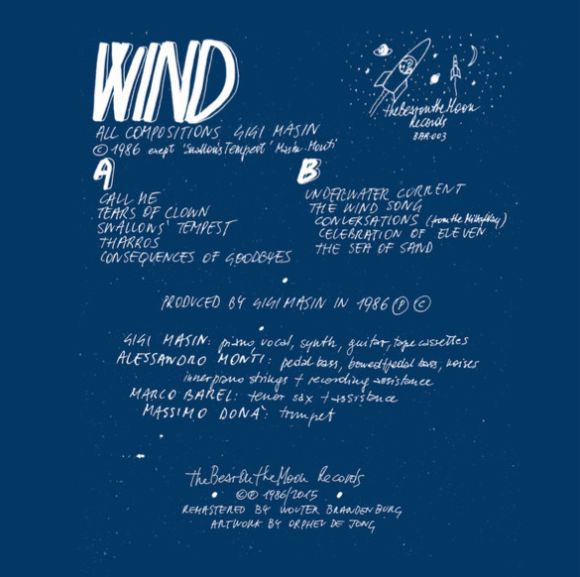 WIND
ALL COMPOSITIONS GIGI MASIN
© 1986 except 'Swallows Tempest' Masin-Monti
the Bear on the Moon
Records
BBR-003
A
CALL ME
TEARS OF CLOWN
SWALLOWS' TEMPEST
THARROS
CONSEQUENCES OF GOODBYES
B
UNDERWATER CURRENT
THE WIND SONG
CONVERSATIONS (from the Milky Way)
CELEBRATION OF ELEVEN
THE SEA OF SAND
PRODUCED BY GIGI MASIN IN 1986 Ⓟ ©
GIGI MASIN: piano, vocal, synth, guitar, tape cassettes
ALESSANDRO MONTI: pedal bass, bowed pedal bass, noises
inner piano strings + recording assistance
MARCO BAREL: tenor sax + assistance
MASSIMO DONÀ: trumpet
the Bear On the Moon Records
©Ⓟ 1986/2015
REMASTERED BY WOUTER BRANDENBURG
ARTWORK BY ORPHEU DE JONG